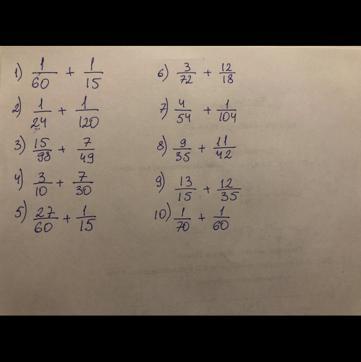 1) 1/60 + 1/15
2) 1/24 + 1/120
3) 15/98 + 7/49
4) 3/10 + 7/30
5) 27/60 + 1/15
6) 3/72 + 12/18
7) 4/54 + 1/104
8) 9/35 + 11/42
9) 13/15 + 12/35
10) 1/70 + 1/60